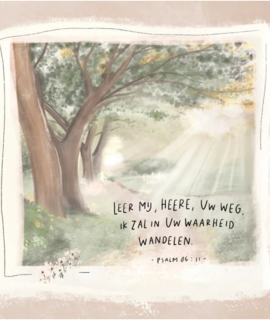 LEER MIJ, HEERE, UW WEG.
IK ZAL IN UW WAARHEID
WANDELEN.
- PSALM 86:11 -